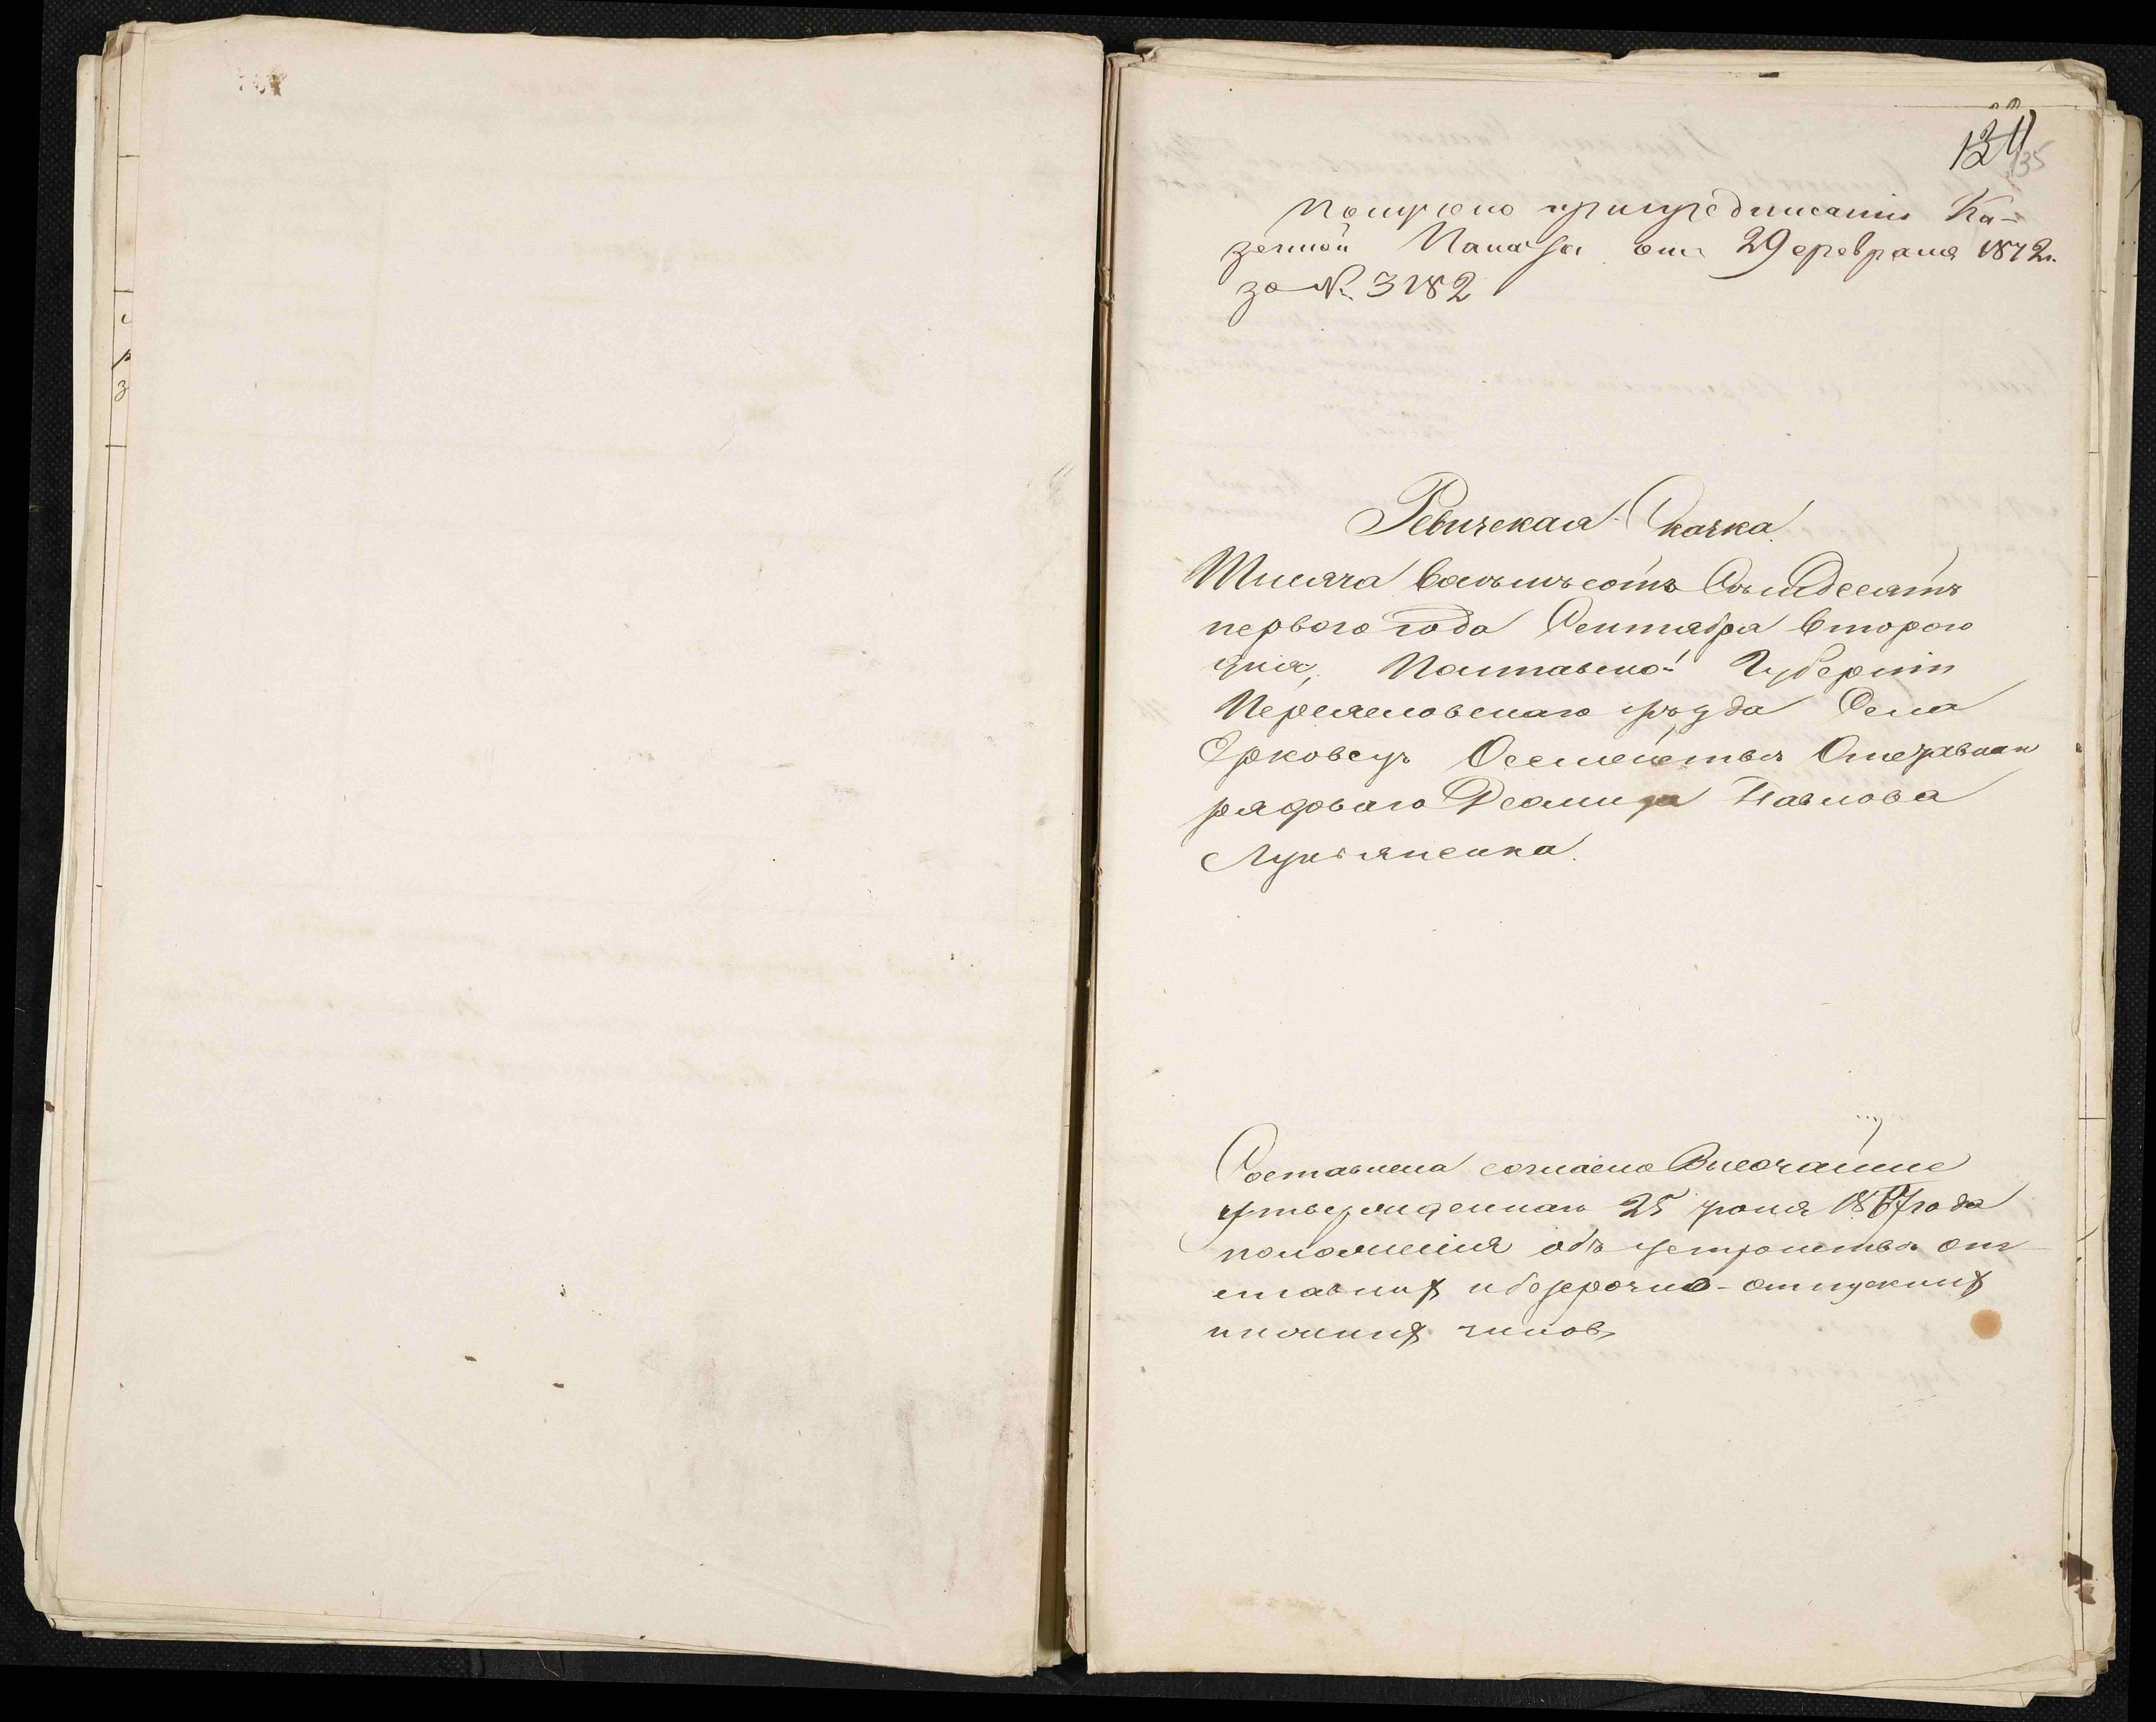 134
135
Получено при предписаніи Ка-
зенной Палаты отъ 29 февраля 1872 г.
за № 3182
Ревизская Сказка
Тысяча восемьсотъ Семьдесятъ
первого года Сентября второго
дня, Полтавской Губерніи
Переяславскаго уѣзда Села
Ерковецъ О семействѣ Отставнаго
рядоваго Павлова
Лукьяненка.
Составлена согласно Высочайше
утвержденнаго 25 іюня 1867 года
положенія объ устройствѣ от-
ставных и безсрочно-отпускных
нижних чиновъ